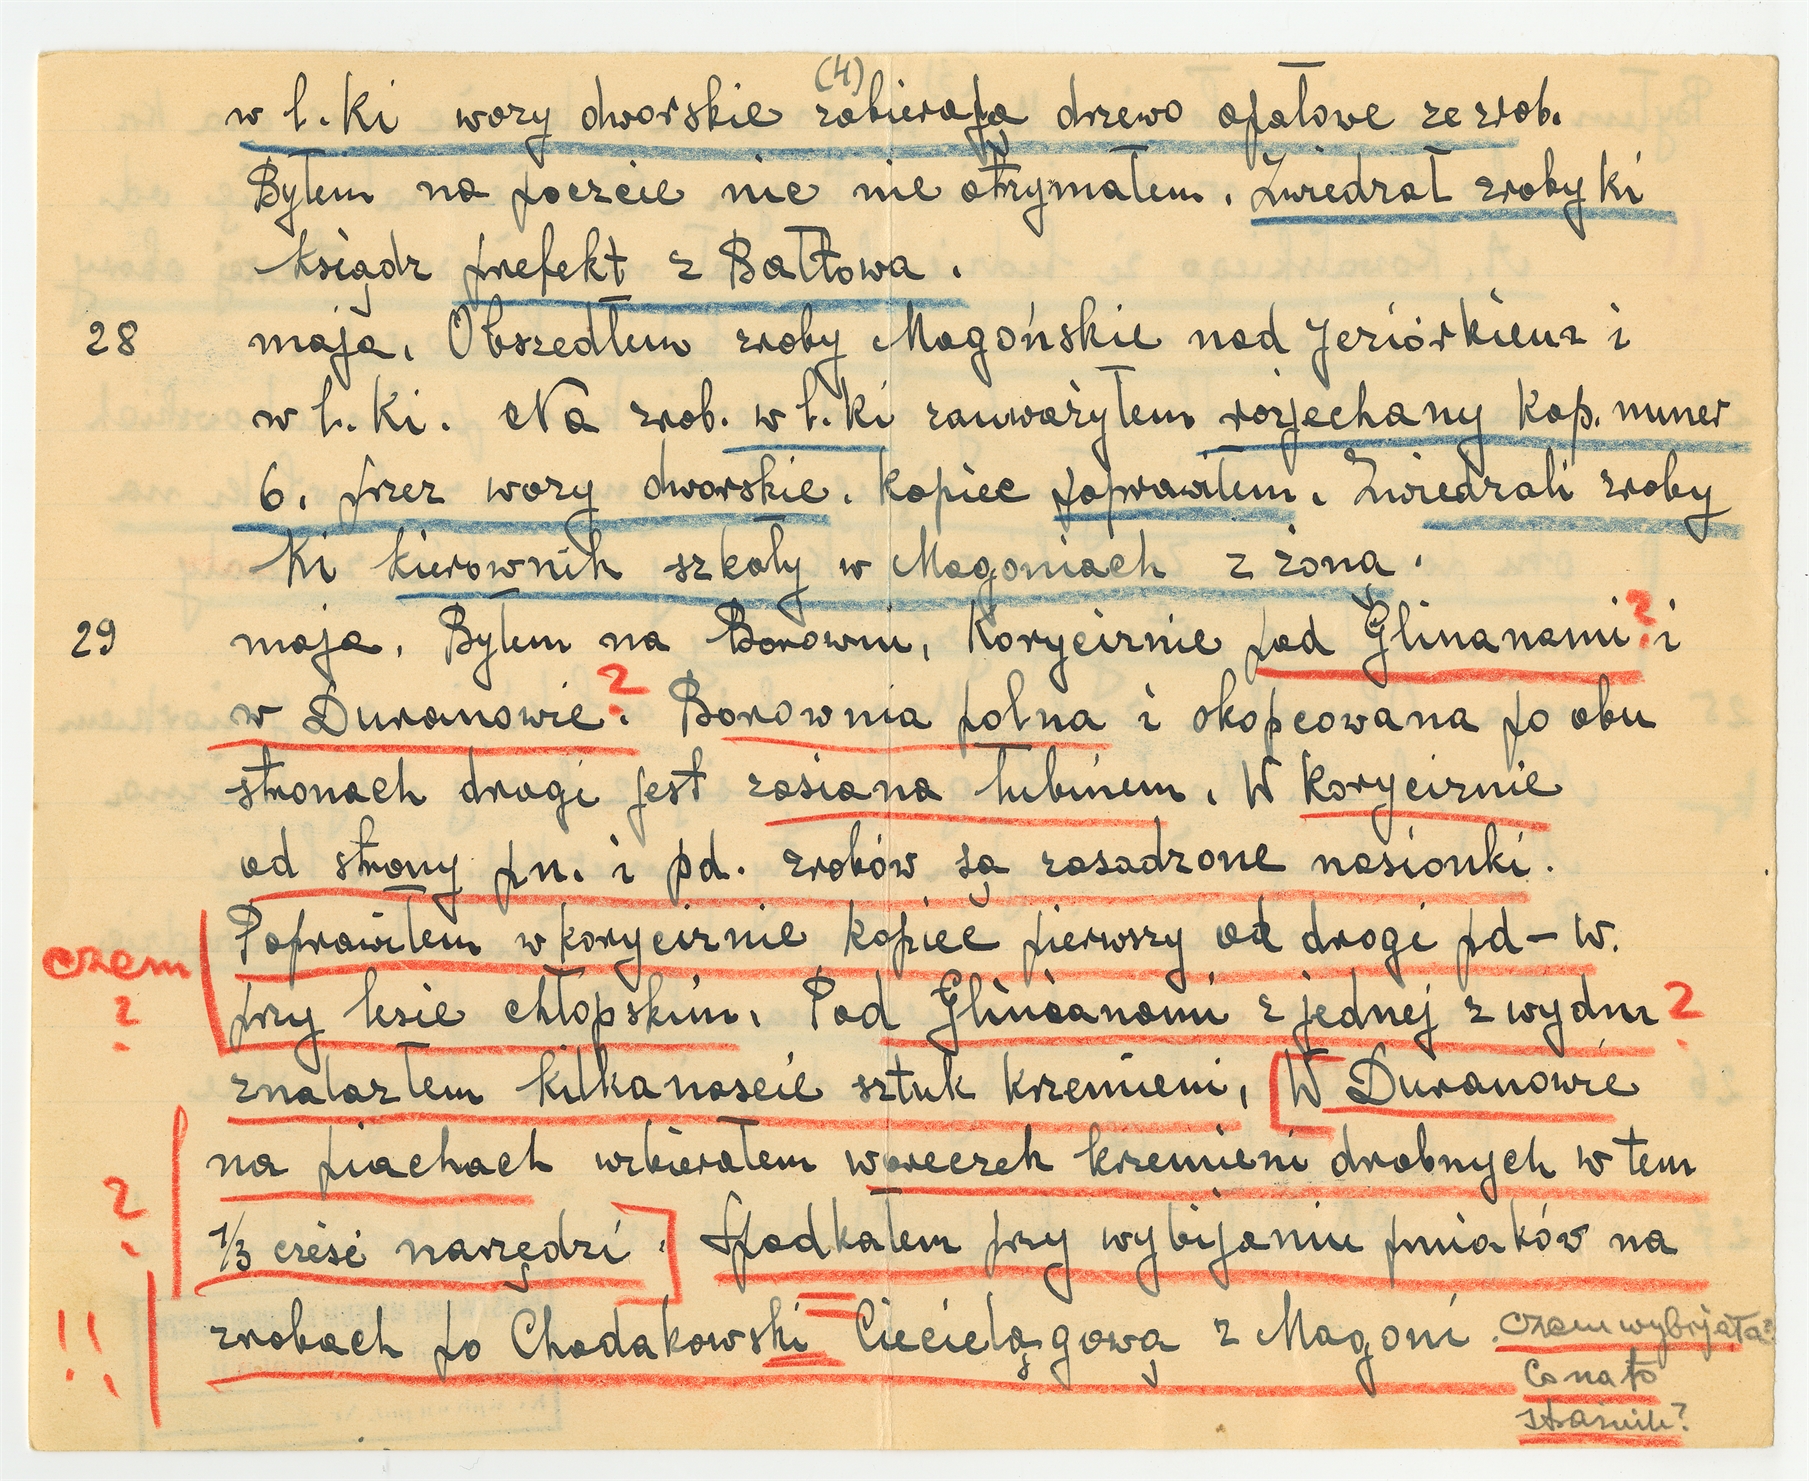 (4)
w l. Ki wozy dworskie zabierają drzewo opałowe ze zrob.
Byłem na poczcie nic nie otrzymałem. Zwiedzał zroby Ki
ksiądz prefekt z Bałtowa.
28 maja. Obszedłem zroby Magońskie nad Jeziórkiem i
w l. Ki. Na zrob. w l. Ki zauważyłem rozjechany Kop. numer
6. przez wozy dworskie. Kopiec poprawiłem. Zwiedzali zroby
Ki kierownik szkoły w Magoniach z żoną.
29 maja. Byłem na Borowni, Korycirnie pod Glinanami ? i
w Duranowie. ? Borownia polna i okopcowana po obu
stronach drogi jest zasiana łubinem. W Korycirnie
od strony pn. i pd. zrobów są zasadzone nasionki.
Poprawiłem w korycirnie kopiec pierwszy od drogi pd-w.
czem ?
przy lesie chłopskim. Pod Glinianami z jednej z wydm ?
znalazłem kilkanaście sztuk krzemieni, W Duranowie
na piachach uzbierałem woreczek krzemieni drobnych w tem
?
1/3 cześć narzędzi. Spodkałem przy wybijaniu pniaków na
!!
zrobach po Chodakowski Ciecielągową z Magoni. czem wybijała?
Co na to
strażnik?